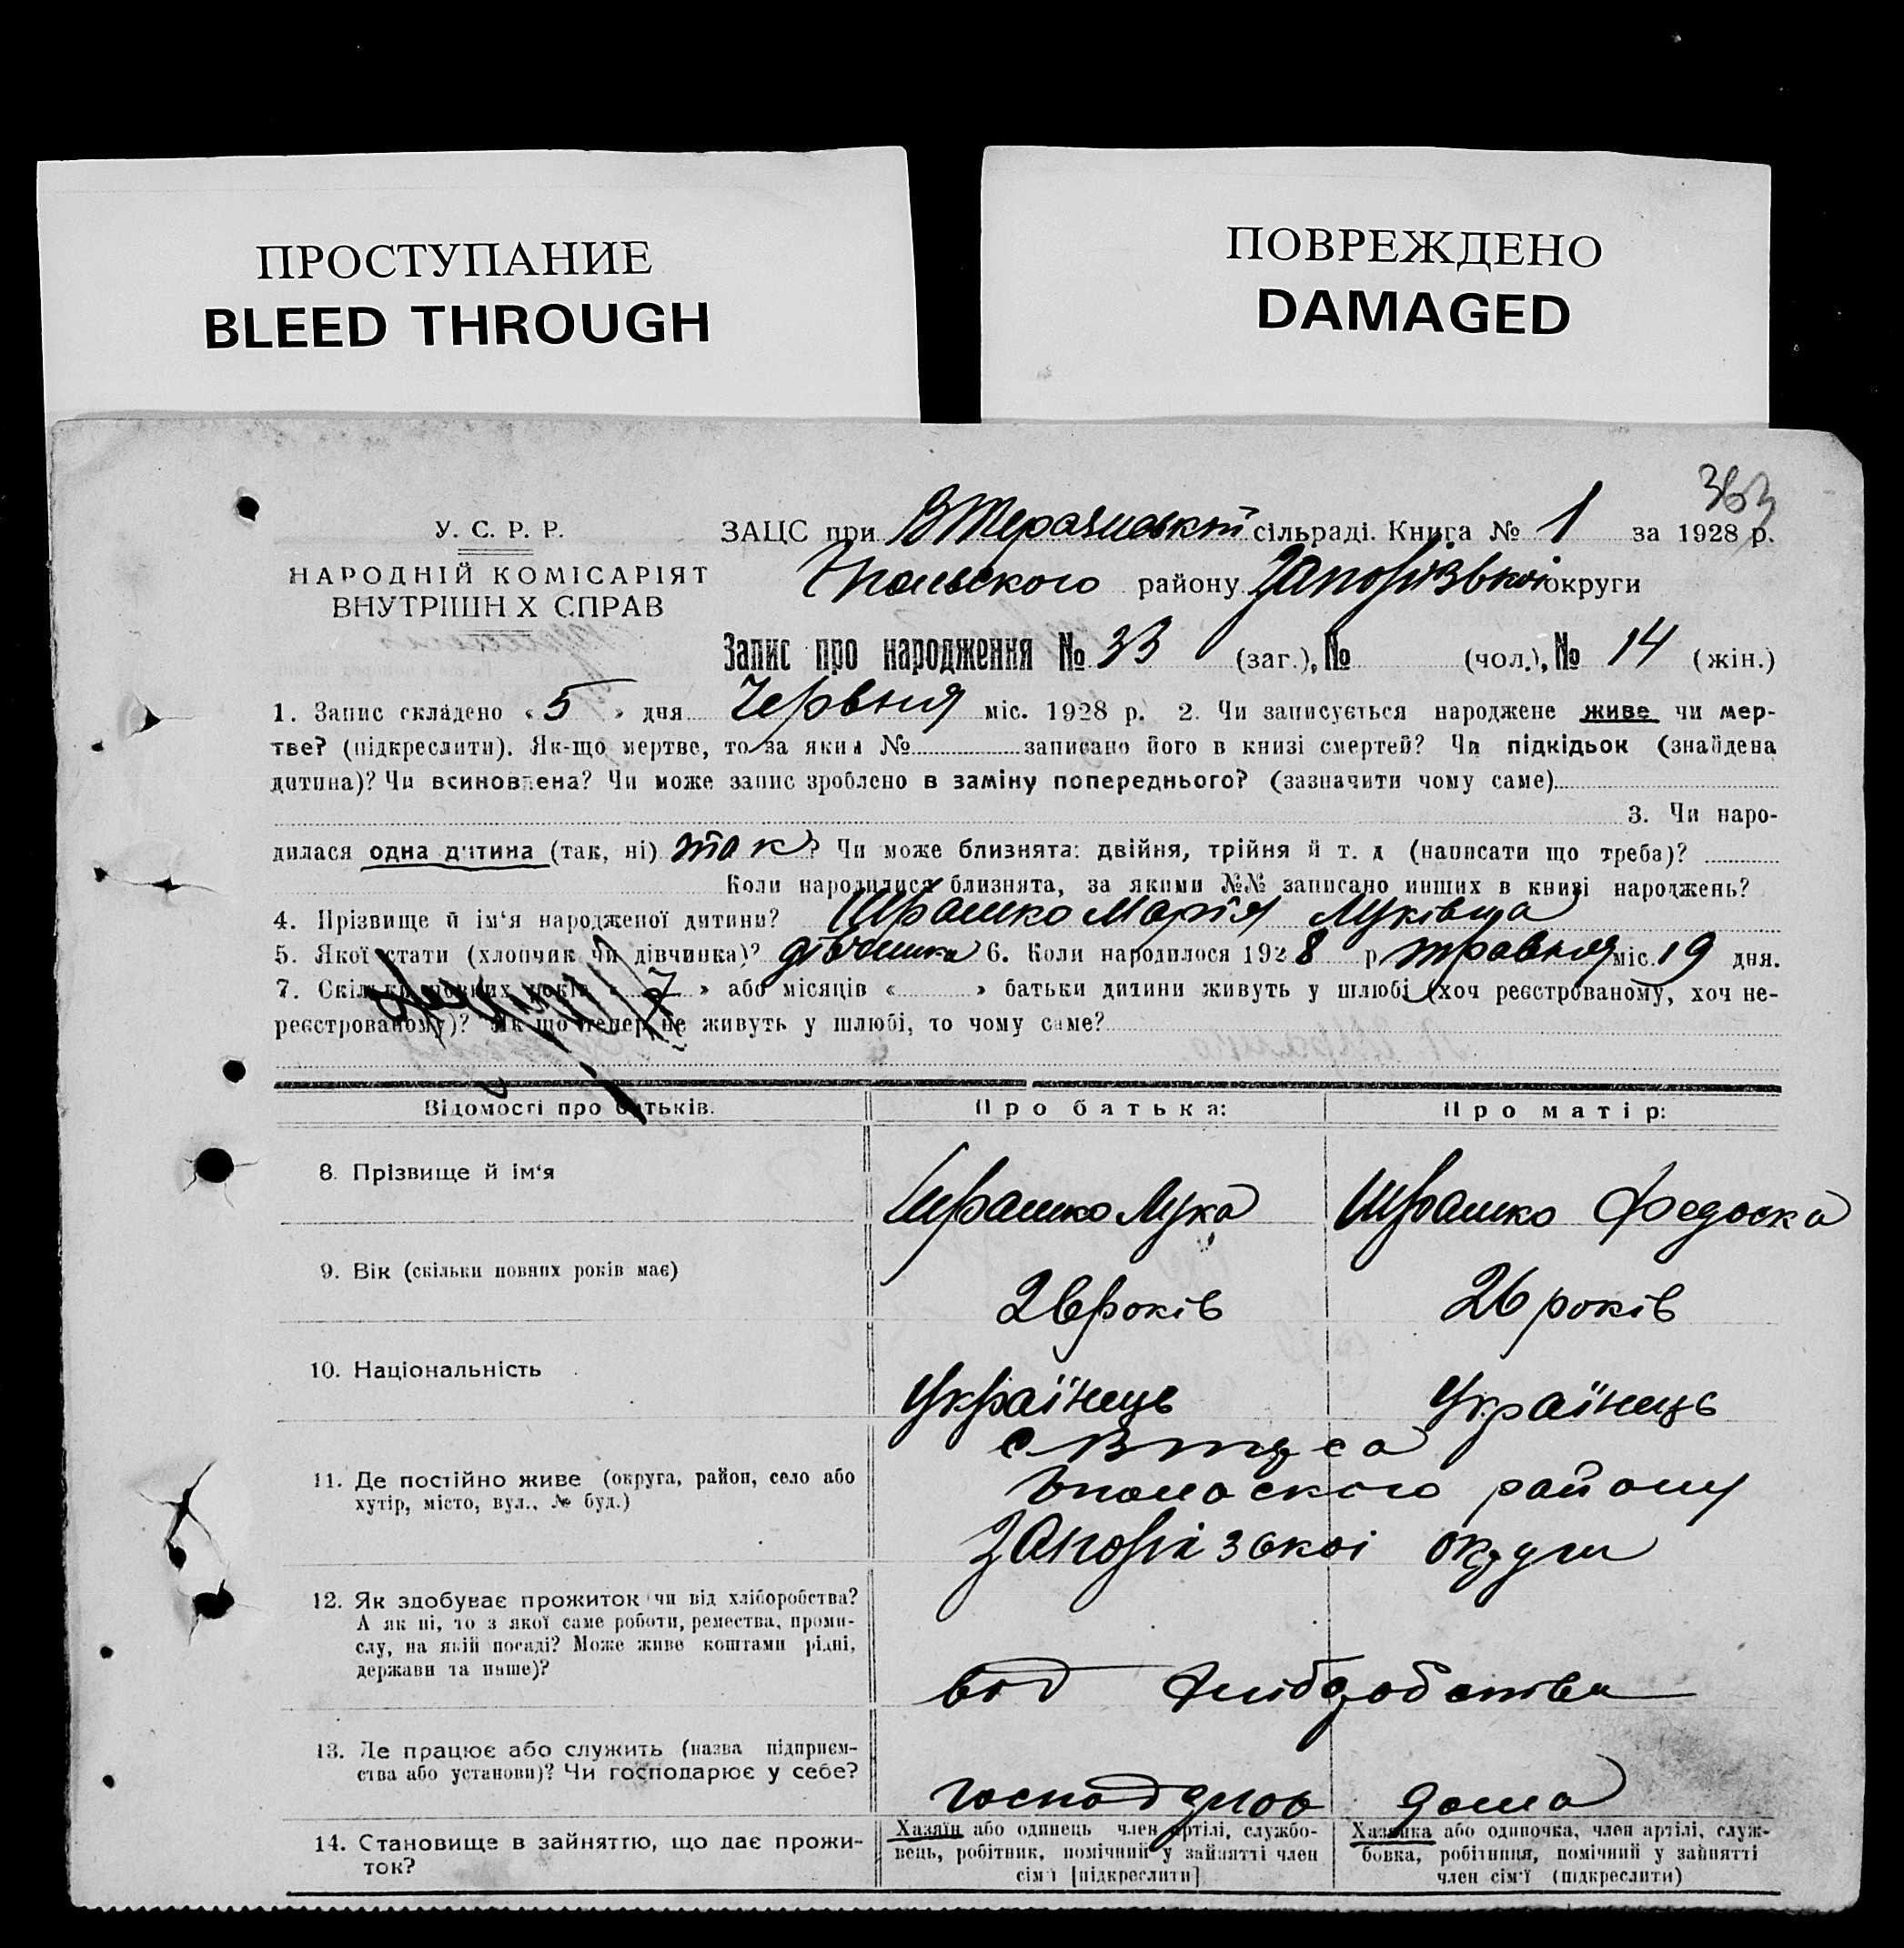 ПРОСТУПАНИЕ
BLEED THROUGH
ПОВРЕЖДЕНО
DAMAGED
363
У. С. Р. Р.
НАРОДНІЙ КОМІСАРІЯТ
ВНУТРІШН Х СПРАВ
ЗАЦС при сільраді. Книга № 1 за 1928 р.
району Запорізької округи
Запис про народження № 33 (заг.), № (чол.), № 14 (жін.)
1. Запис складено « 5 » дня Червня міс. 1928 р. 2. Чи записується народжене живе чи мер-
тве? (підкреслити). Як-що мертве, то за яким № записано його в книзі смертей? Чи підкідьок (знайдена
дитина)? Чи всиновлена? Чи може запис зроблено в заміну попереднього? (зазначити чому саме)
3. Чи наро-
дилася одна дитина (так, ні) так? Чи може близнята: двійня, трійня й т. д (написати що треба)?
Коли народилися близнята, за якими №№ записано инших в книзі народжень?
4. Прізвище й ім'я народженої дитини? Шрамко Марія Луківна
5. Якої стати (хлопчик чи дівчинка)? дівчинка 6. Коли народилося 1928 р травня міс. 19 дня.
7. Скільки повних років « 7 » або місяців « » батьки дитини живуть у шлюбі (хоч реєстрованому, хоч не-
реєстрованому)? Як що тепер не живуть у шлюбі, то чому саме?
Відомості про батьків.
Про батька:
Про матір:
8. Прізвище й ім'я
Шрамко Лука
Шрамко Федоска
9. Вік (скільки повних років має)
26 років
26 років
10. Національність
Українець
Українець
11. Де постійно живе (округа, район, село або
хутір, місто, вул., № буд.)
району
Запорізької округи
12. Як здобуває прожиток чи від хліборобства?
А як ні, то з якої саме роботи, ремества, проми-
слу, на якій посаді? Може живе коштами рідні,
держави та инше)?
13. Де працює або служить (назва підприєм-
ства або установи)? Чи господарює у себе?
дома
14. Становище в зайняттю, що дає прожи-
ток?
Хазяїн або одинець член артілі, службо-
вець, робітник, помічний у зайнятті член
сім'ї [підкреслити]
Хазяйка або одиночка, член артілі, служ-
бовка, робітниця, помічний у зайнятті
член сім'ї (підкреслити)